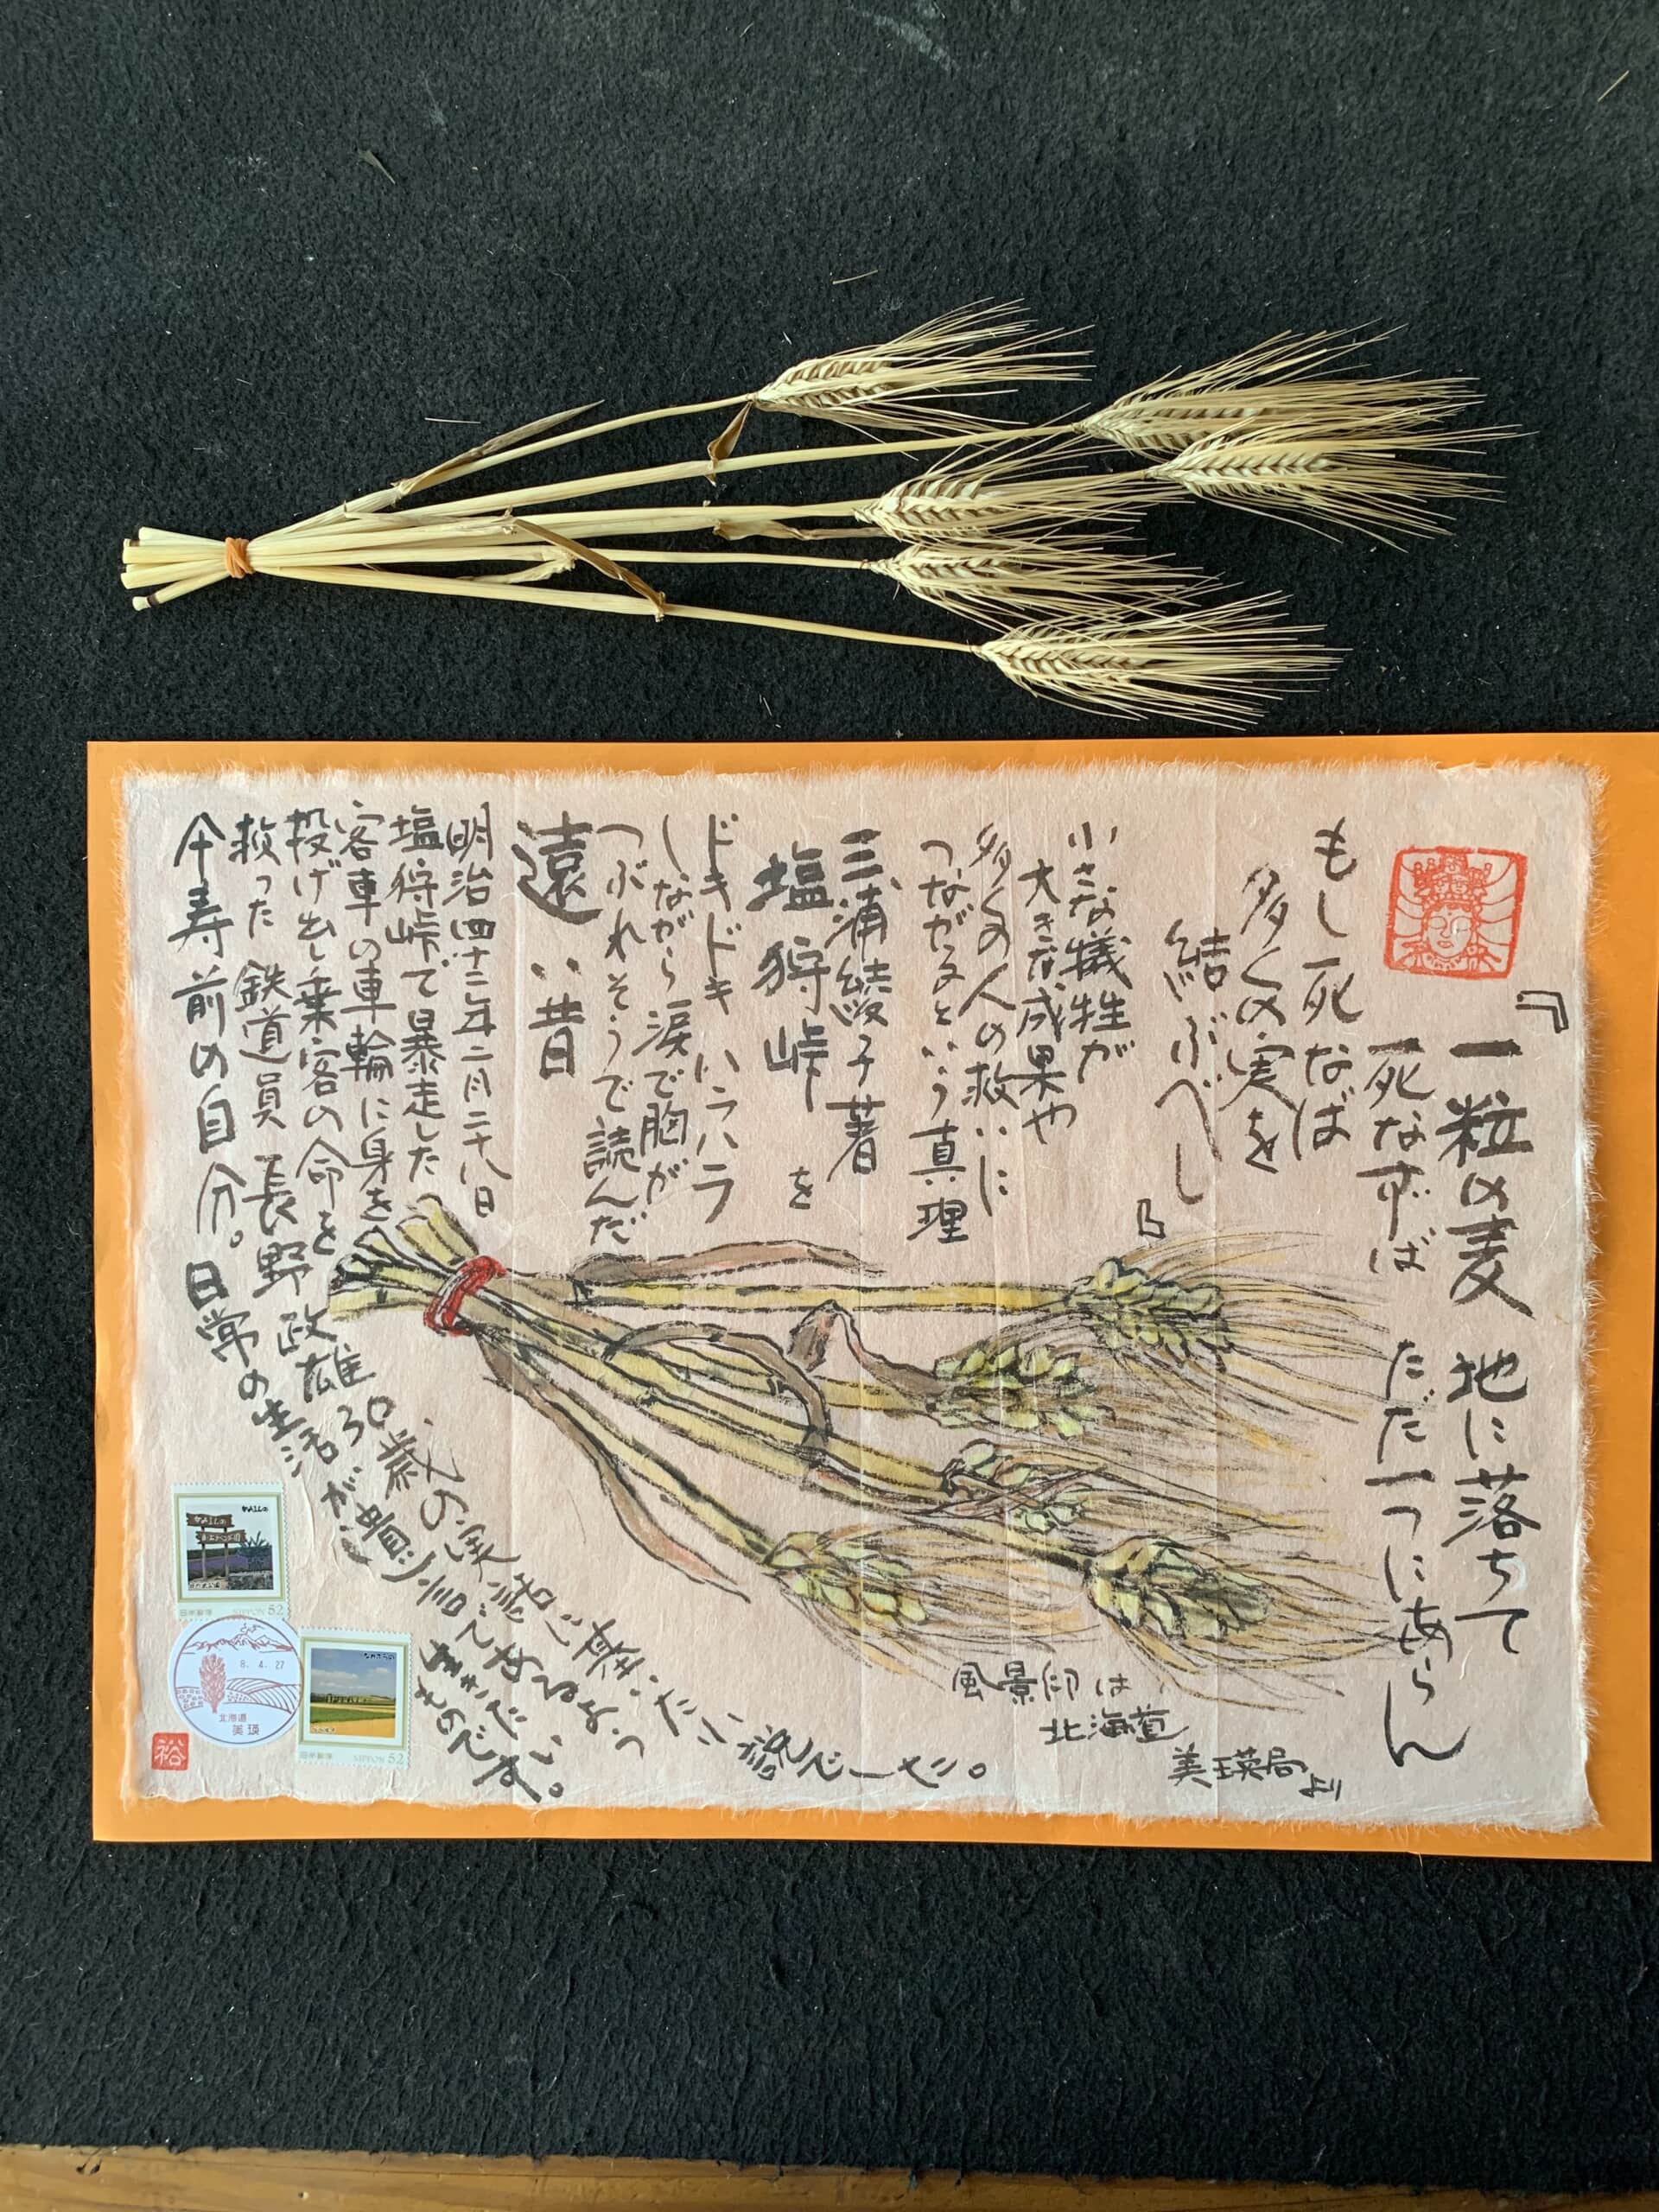 『一粒の麦 地に落ちて
死なずば ただ一つにあらん
もし死なば
多くの実を
結ぶべし』
小さな犠牲が
大きな成果や
多くの人の救いに
つながるという真理
三浦綾子著
塩狩峠 を
ドキドキ ハラハラ
しながら 涙で胸が
つぶれそうで読んだ
遠い昔
明治四十二年二月二十八日
塩狩峠で暴走した
客車の車輪に身を
投げ出し乗客の命を
救った 鉄道員 長野政雄 30歳の実話に基いた小説でした。
仐寿前の自分。日常の生活が遺言であるよう
生きたい
ものです。
風景印は
北海道
美瑛局より
日本郵便 NIPPON 52
8.4.27
北海道
美瑛
日本郵便 NIPPON 52
裕